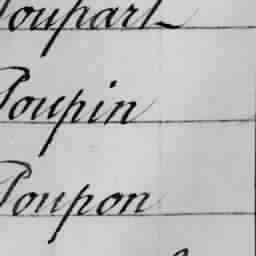 Poupart
Poupin
Poupon